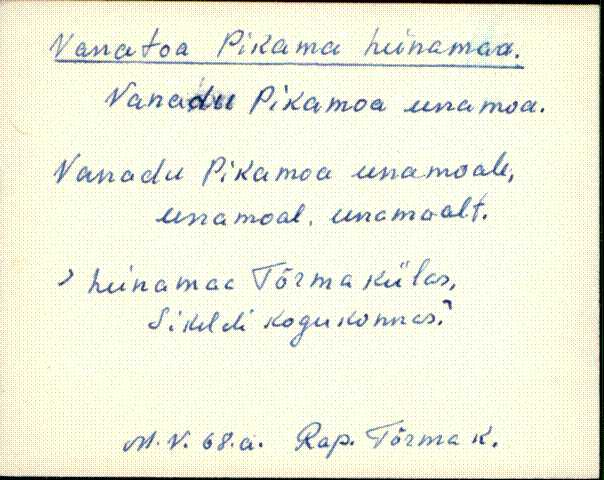 Vanatoa Pikama heinamaa.
Vanadu Pikamoa einamoa.
Vanadu Pikamoa einamoale,
einamoal, einamoalt.
› heinamaa Tõrma külas,
Sikeldi kogukonnas?
M. V. 68.a. Rap. Tõrma k.